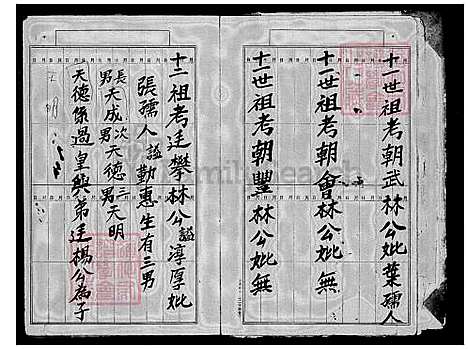 十一世祖考朝武林公妣葉孺人
十一世祖考朝會林公妣無
十一世祖考朝豐林公妣無
十二祖考廷攀林公謚淳厚妣
張孺人謚勤惠生有三男
長男天成次男天德三男天明
天德係過皇興弟廷楊公為子